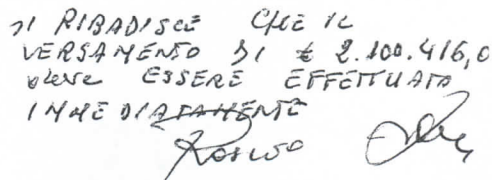 SI RIBADISCE CHE IL
VERSAMENTO DI € 2.100.416,0
deve ESSERE EFFETTUATO
IMMEDIATAMENTE